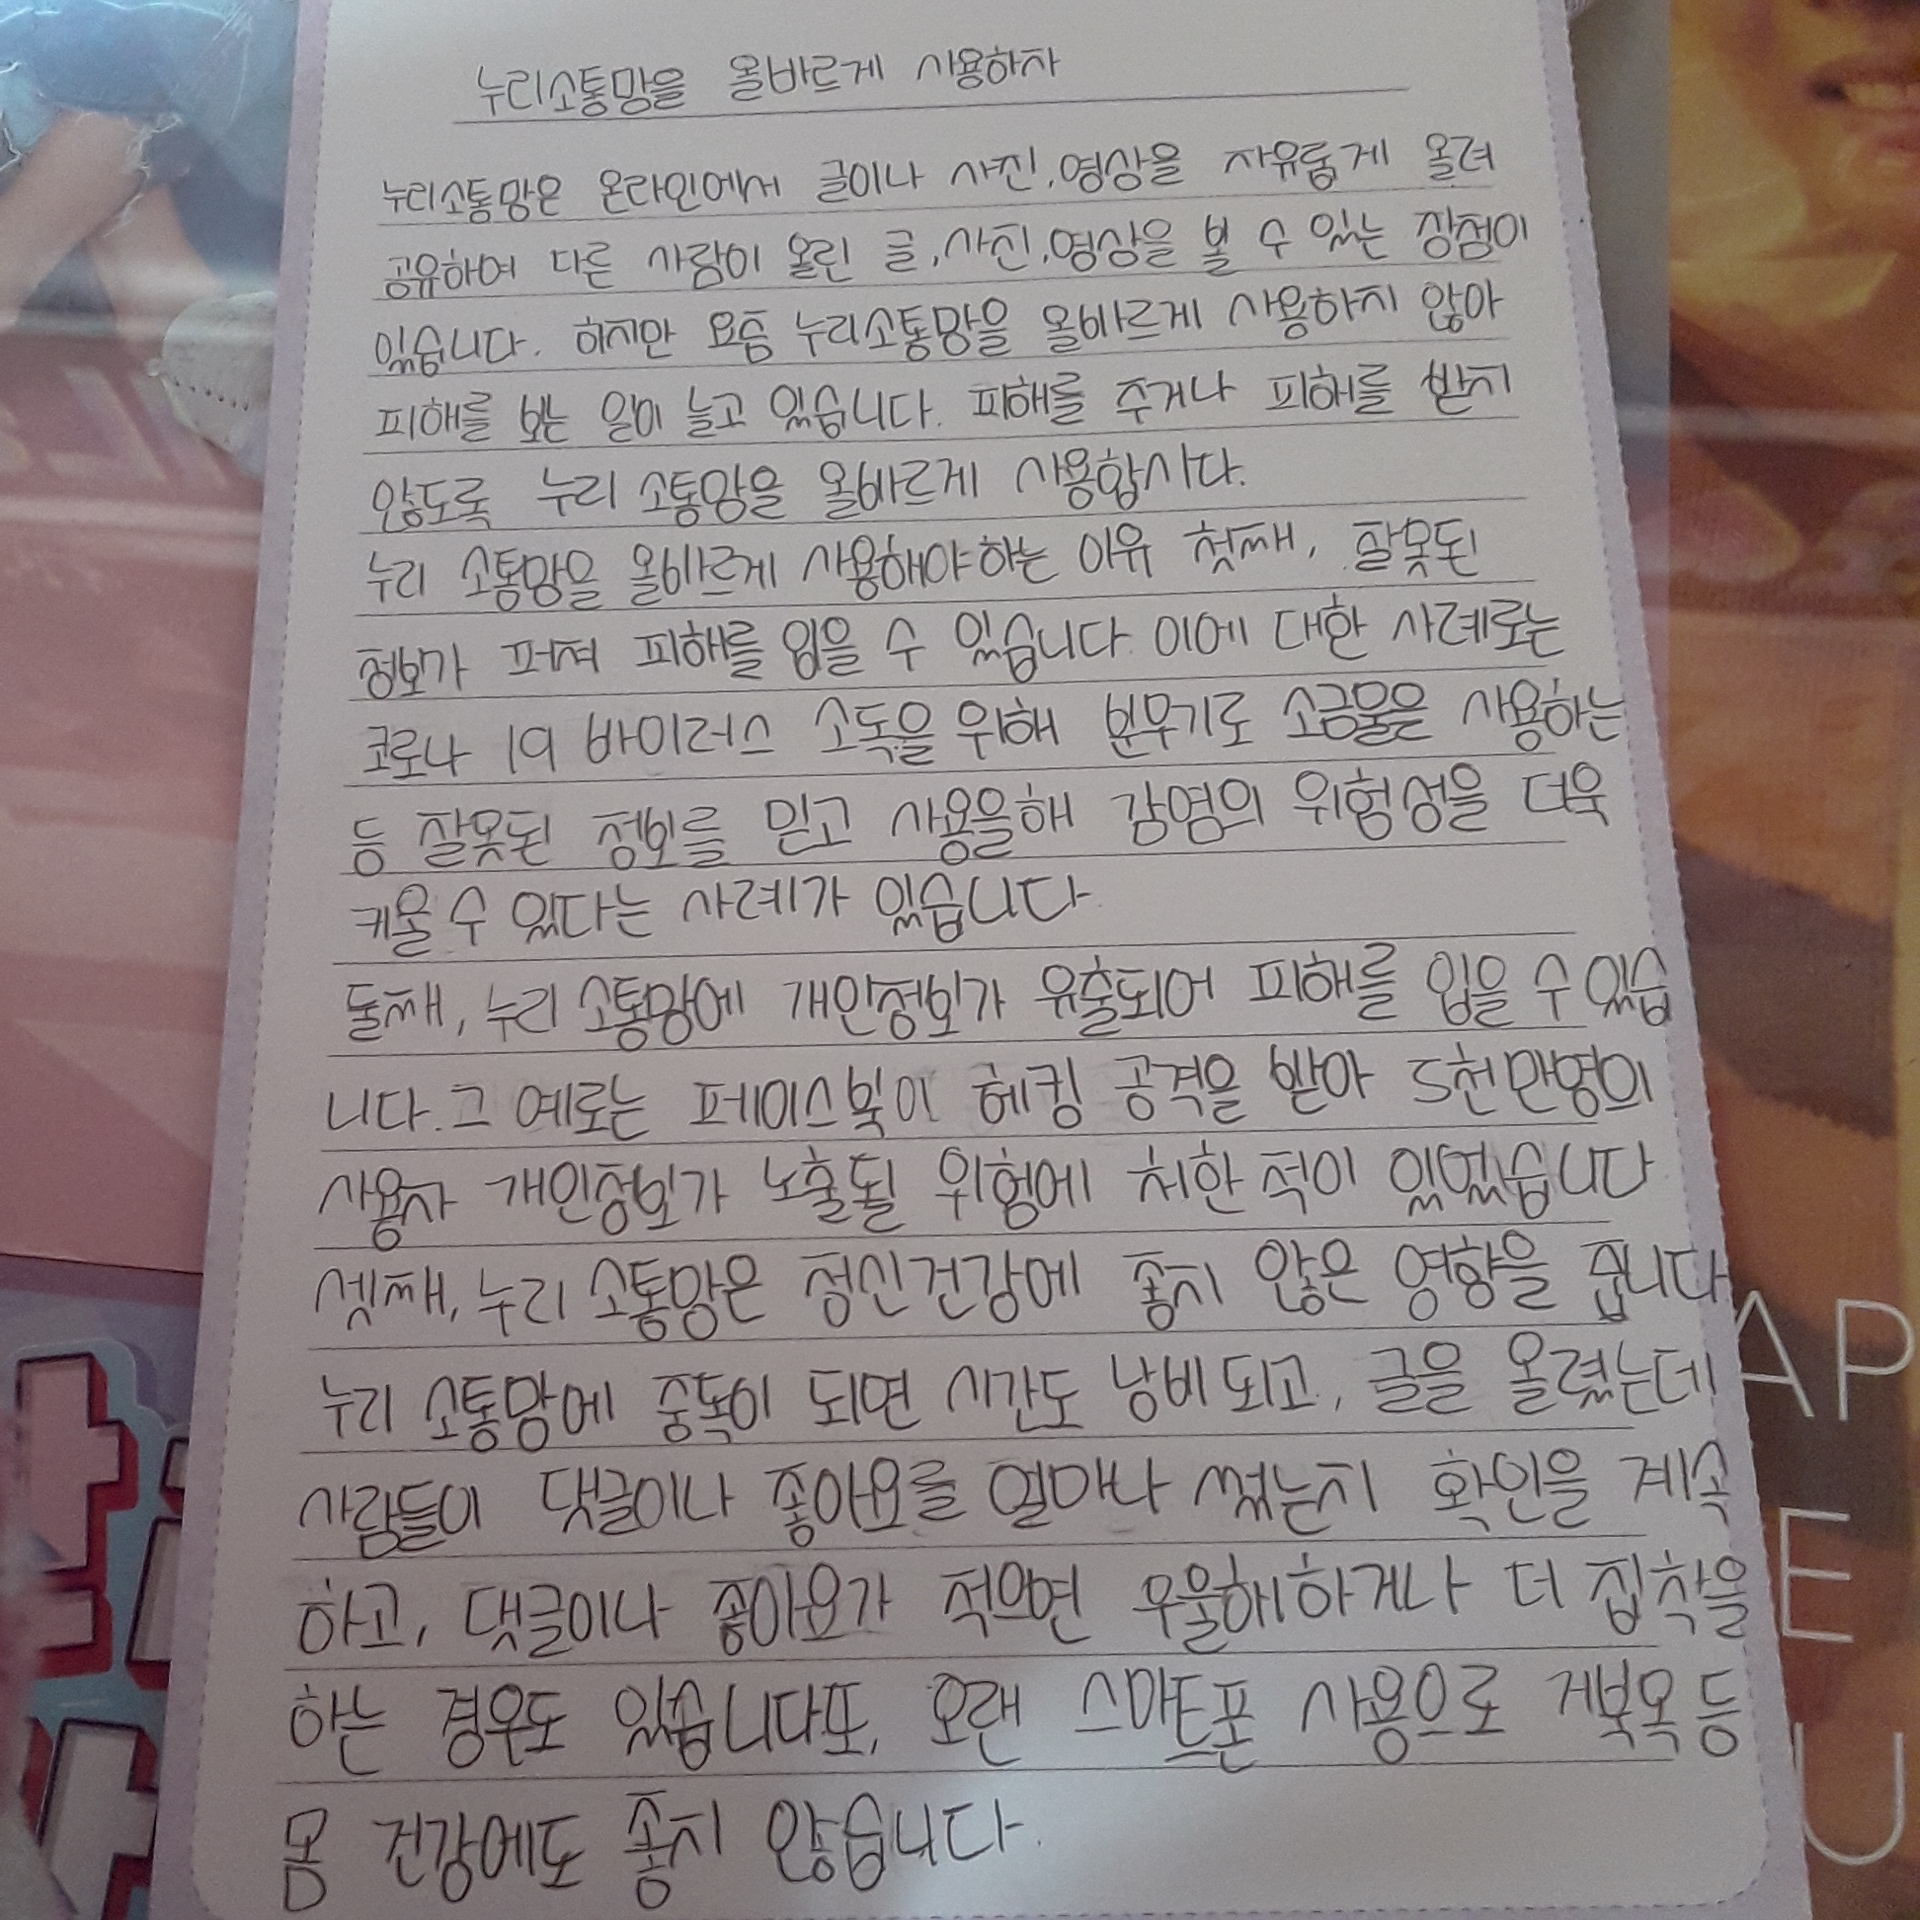 누리소통망을 올바르게 사용하자
누리소통망은 온라인에서 글이나 사진,영상을 자유롭게 올려
공유하여 다른 사람이 올린 글,사진,영상을 볼 수 있는 장점이
있습니다. 하지만 요즘 누리소통망을 올바르게 사용하지 않아
피해를 보는 일이 늘고 있습니다. 피해를 주거나 피해를 받지
않도록 누리 소통망을 올바르게 사용합시다.
누리 소통망을 올바르게 사용해야하는 이유 첫째, 잘못된
정보가 퍼져 피해를 입을 수 있습니다. 이에 대한 사례로는
코로나 19 바이러스 소독을 위해 분무기로 소금물을 사용하는
등 잘못된 정보를 믿고 사용을해 감염의 위험성을 더욱
키울 수 있다는 사례가 있습니다.
둘째, 누리 소통망에 개인정보가 유출되어 피해를 입을 수 있습
니다. 그 예로는 페이스북이 헤킹 공격을 받아 5천만명의
사용자 개인정보가 노출될 위험에 처한 적이 있었습니다
셋째, 누리 소통망은 정신건강에 좋지 않은 영향을 줍니다.
누리 소통망에 중독이 되면 시간도 낭비되고, 글을 올렸는데
사람들이 댓글이나 좋아요를 얼마나 썼는지 확인을 계속
하고, 댓글이나 좋아요가 적으면 우울해하거나 더 집착을
하는 경우도 있습니다또, 오랜 스마트폰 사용으로 거북목 등
몸 건강에도 좋지 않습니다.
AP
E
U